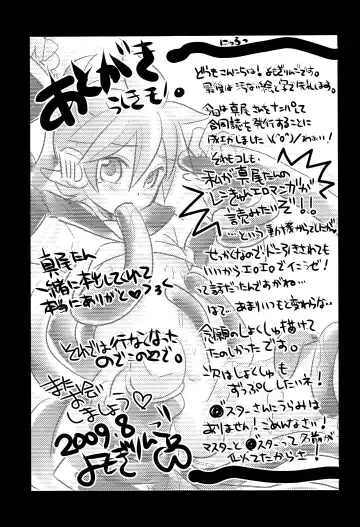 あとがき
どうもこんにちは！よもぎりんごです。
今回は真尾さんをナンパして
合同誌を発行することに
成功しました\(^o^)/わぁい！
それもコレも
私が真尾たんの
エロマンガが
読みたいぞ！！
…という動機からでしたが
せっかくなのでドン引きされても
いいからエロエロでイこうゼ！
って話だったんですがね…
あまりいつもと変わらな…
念願のしょくしゅ描けて
たのしかったです。
次はしょくしゅも
ずっぷししたいネ！
スターさんにうらみは
ありません！ごめんなさい！
マスターと スターって名前が
似てたからさ！
真尾たん
一緒に本出してくれて
本当にありがと♡
それでは行なくなった
のでこのへんで。
また会い
ましょう♡
2009.8
よもぎりんご